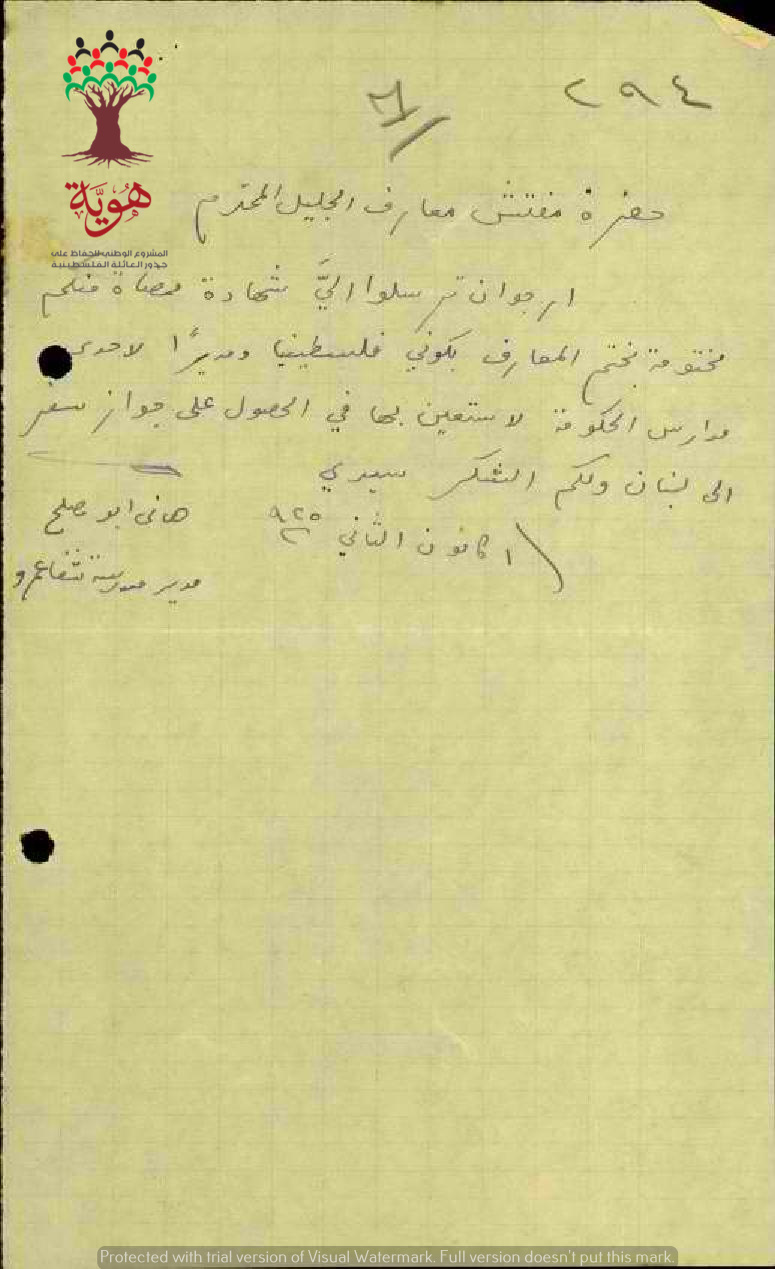 ٢٩٤
هويّة
المشروع الوطني للحفاظ على
جذور العائلة الفلسطينية
حضرة مفتش معارف الجليل المحترم
ارجو ان ترسلوا اليَّ شهادة ممضاة منكم
مختومة بختم المعارف بكوني فلسطينيا ومديرًا لاحدى
مدارس الحكومة لاستعين بها في الحصول على جواز سفر
الى لبنان ولكم الشكر سيدي
١ كانون الثاني ٩٢٥
هاني ابو مصلح
مدير مدرسة شفاعمرو
Protected with trial version of Visual Watermark. Full version doesn't put this mark.